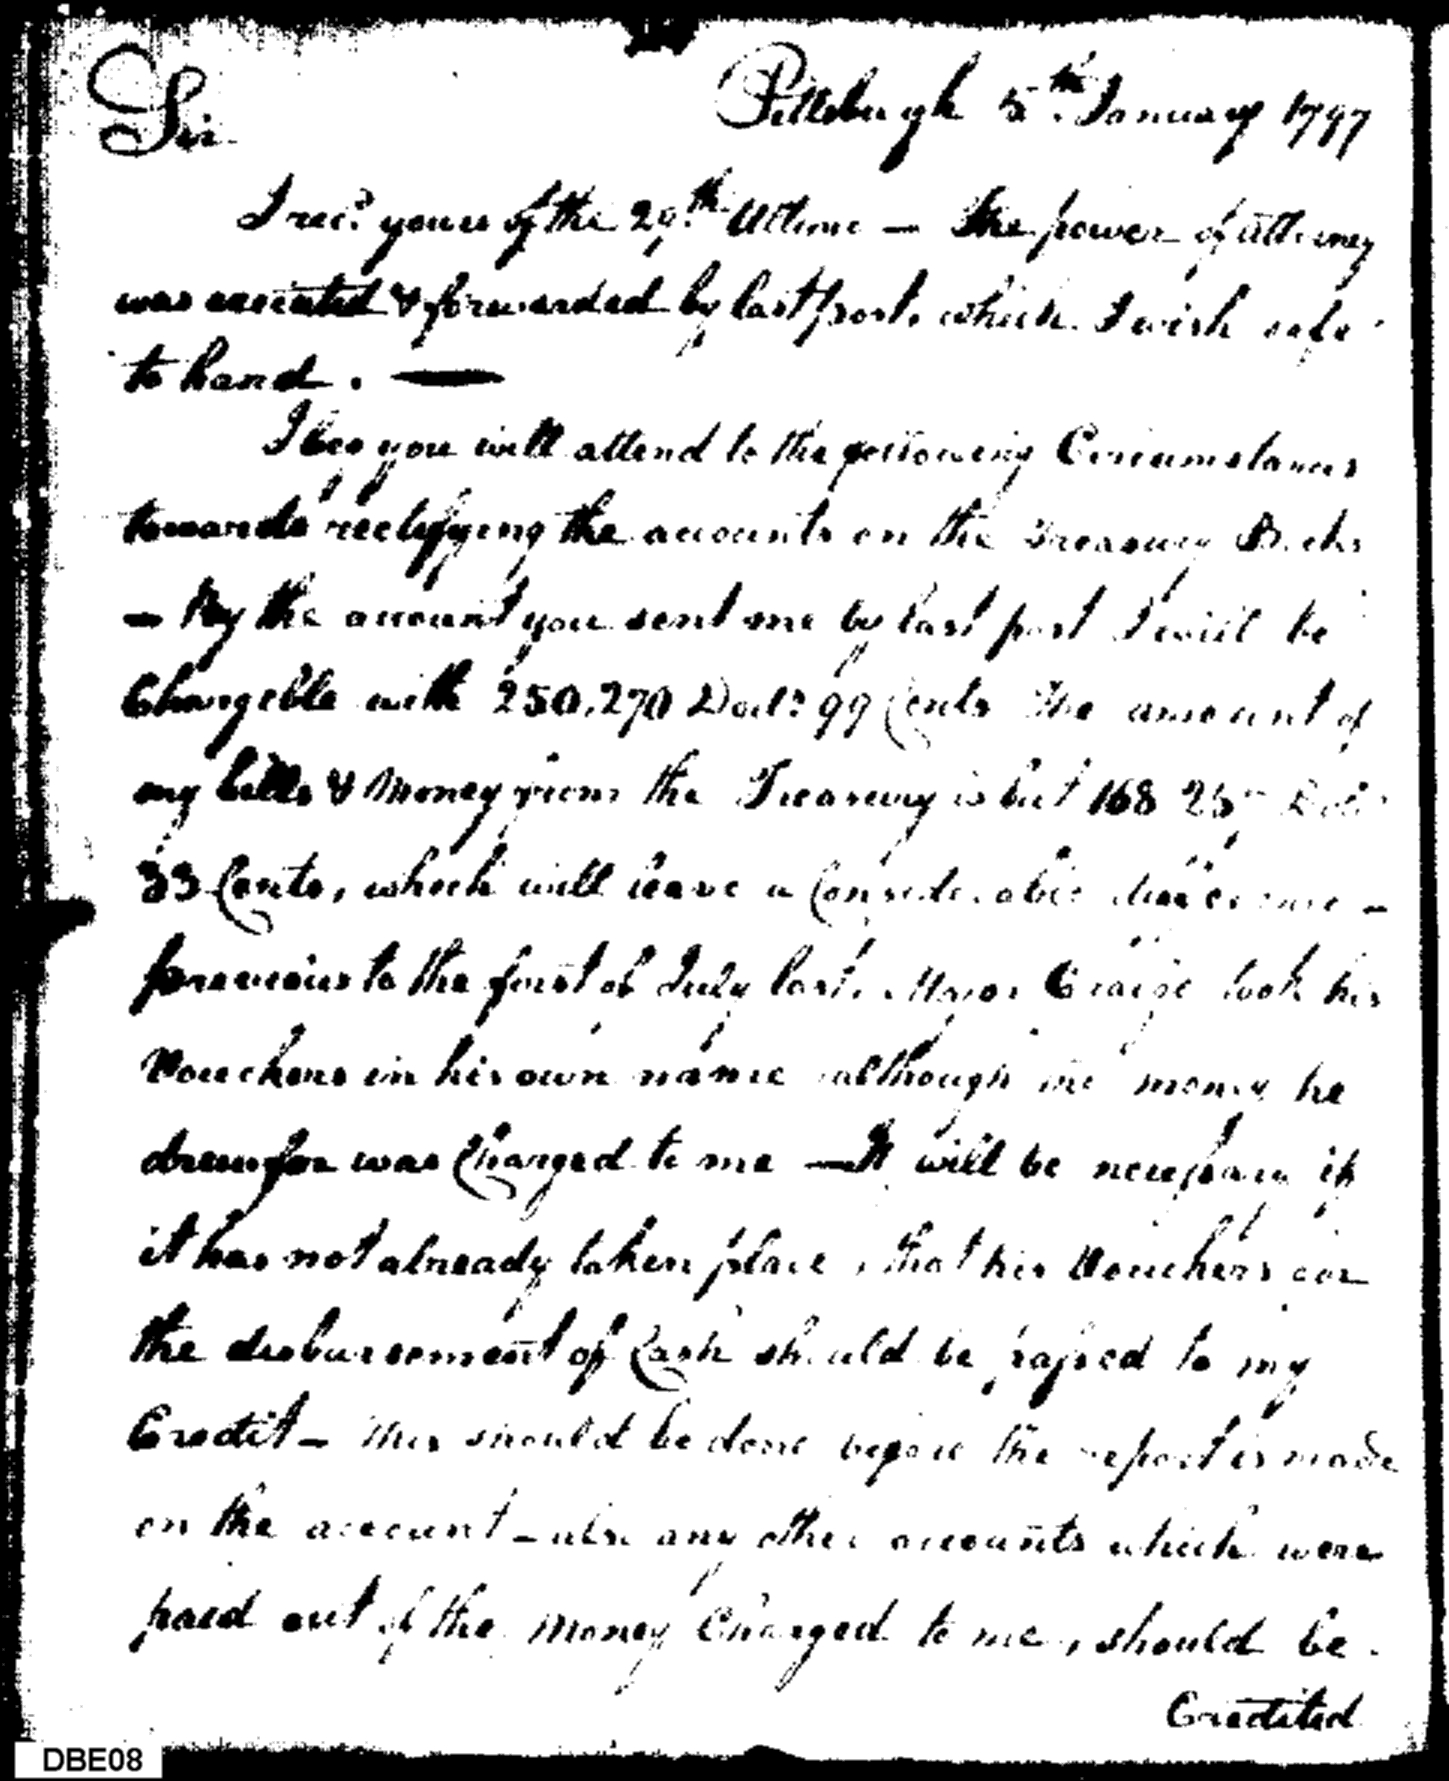 Sir
Pittsburgh 5th. January 1797
I recd. yours of the 29th. Ultimo — The power of attorney
was executed & forwarded by last post, which I wish safe
to hand. —
I beg you will attend to the following Circumstances
towards rectifying the accounts on the Treasury Books
— By the account you sent me by last post I will be
Chargeble with 250,270 Dolls. 99 Cents the amount of
my bills & Money from the Treasury is but 168 25
33 Cents, which will leave a Considerable —
previous to the first of July last, Major Craige took his
Vouchers in his own name although the money he
drew for was Charged to me — It will be necessary if
it has not already taken place, that his Vouchers for
the disbursement of Cash should be passed to my
Credit — this should be done before the report is made
on the account — also any other accounts which were
paid out of the Money Charged to me, should be
Credited
DBE08